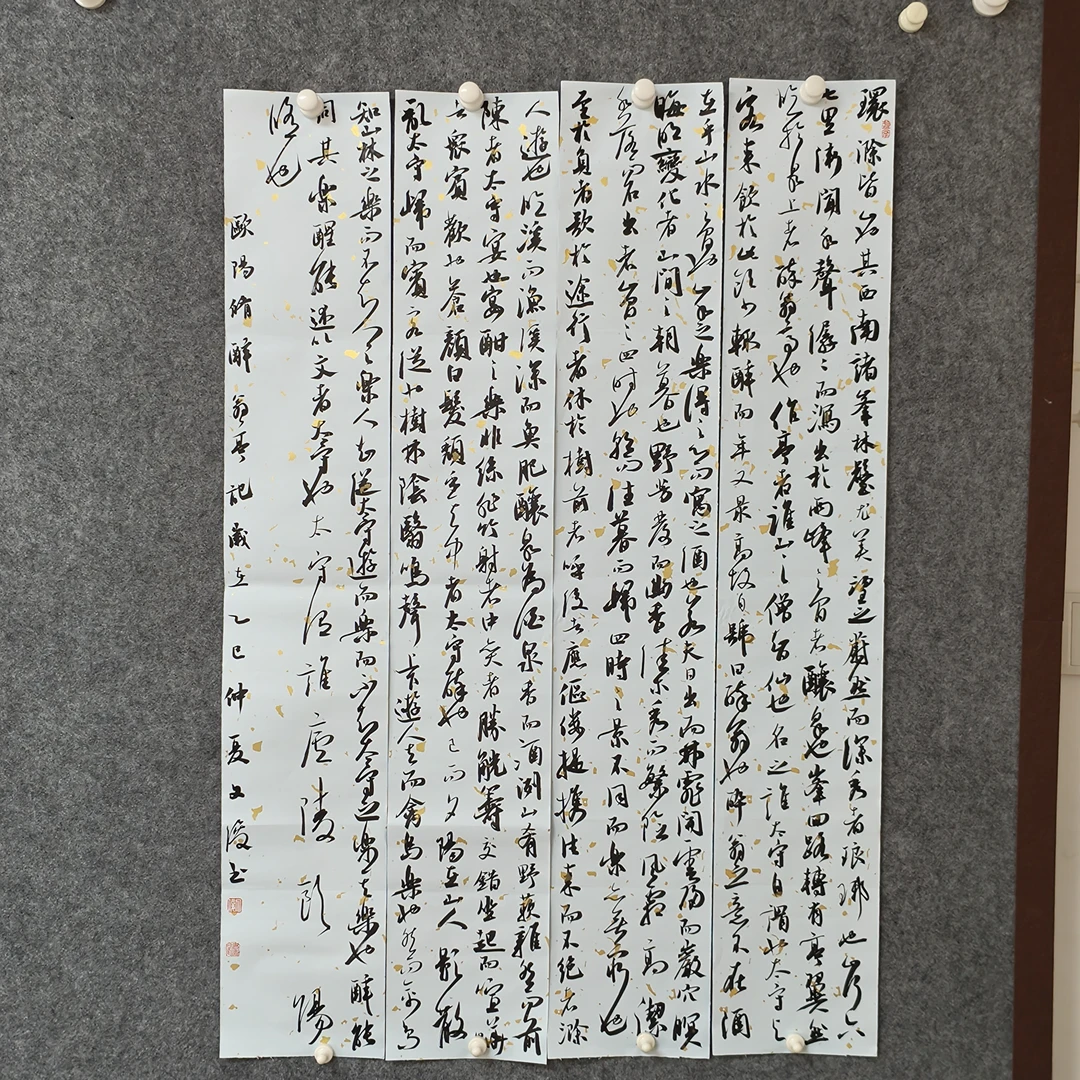 環滁皆山也其西南諸峯林壑尤美望之蔚然而深秀者琅琊也山行六
七里漸聞水聲潺〻而瀉出於兩峰之間者釀泉也峯回路轉有亭翼然
臨於泉上者醉翁亭也作亭者誰山之僧智仙也名之誰太守自謂也太守與
客來飲於此飲少輒醉而年又最高故自號曰醉翁也醉翁之意不在酒
在乎山水之間也山水之樂得之心而寓之酒也若夫日出而林霏開雲歸而巖穴暝
晦明變化者山間之朝暮也野芳發而幽香佳木秀而繁陰風霜高潔
水落石出者山間之四時也朝而往暮而歸四時之景不同而樂亦無窮也
至於負者歌於途行者休於樹前者呼後者應傴僂提攜往來而不絕者滁
人遊也臨溪而漁溪深而魚肥釀泉為酒泉香而酒洌山肴野蔌雜然而前
陳者太守宴也宴酣之樂非絲非竹射者中奕者勝觥籌交錯坐起而諠譁
者衆賓歡也蒼顏白髮頹乎其中者太守醉也已而夕陽在山人影散
亂太守歸而賓客從也樹林陰翳鳴聲上下遊人去而禽鳥樂也然而禽鳥
知山林之樂而不知人之樂人知從太守遊而樂而不知太守之樂其樂也醉能
同其樂醒能述以文者太守也太守謂誰廬陵歐陽
脩也
歐陽脩醉翁亭記歲在乙巳仲夏文俊書